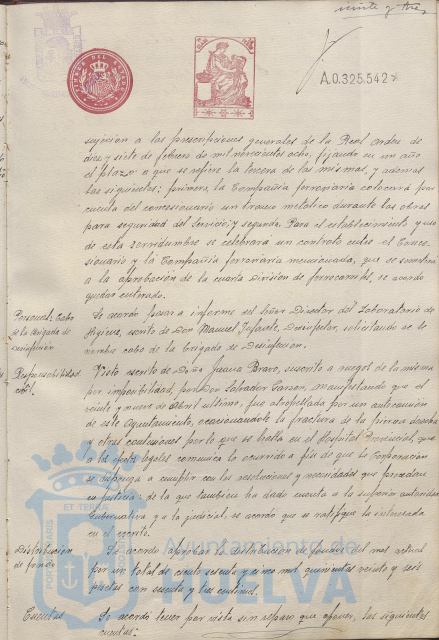 veinte y tres
TIMBRE DEL ESTADO
A.0.325.542
sujeción a las prescripciones generales de la Real orden de
diez y siete de febrero de mil novecientos ocho, fijando en un año
el plazo a que se refiere la tercera de las mismas, y ademas
las siguientes: primera, la Compañia ferroviaria colocará por
cuenta del concesionario un tranco metálico durante las obras
para seguridad del servicio; y segunda. Para el establecimiento y uso
de esta servidumbre se celebrará un contrato entre el Conce-
sionario y la Compañia ferroviaria mencionada, que se someterá
a la aprobación de la cuarta Division de ferrocarriles, se acordó
quedar enterado.
Personal: Cabo
de la Brigada de
Desinfección
Se acordó pasar a informe del Señor Director del Laboratorio de
Higiene, escrito de Don Manuel Infante, Desinfector, solicitando se le
nombre cabo de la Brigada de Desinfección.
Responsabilidad
civil.
Visto escrito de Doña Juana Bravo, suscrito a ruegos de la misma
por imposibilidad, por Don Salvador, manifestando que el
veinte y nueve de Abril ultimo, fue atropellada por un autocamión
de este Ayuntamiento, ocasionandole la fractura de la pierna derecha
y otras contusiones por lo que se halla en el Hospital Provincial, que
a los efectos legales comunica lo ocurrido a fin de que la Corporación
se disponga a cumplir con las resoluciones y necesidades que procedan
en justicia; de lo que tambien ha dado cuenta a la superior autoridad
Gubernativa y a la judicial, se acordó que se ratifique la interesada
en el escrito.
Distribución
de fondos
Se acordó aprobar la distribución de fondos del mes actual
por un total de ciento sesenta y cinco mil quinientas veinte y seis
pesetas con cuenta y tres centimos.
Cuentas
Se acordó tener por vista sin reparo que oponer, las siguientes
cuentas:
PORTUS MARIS
ET TERRAE
Ayuntamiento de
HUELVA